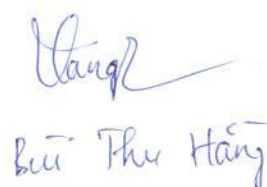 Hằng
Bùi Thu Hằng